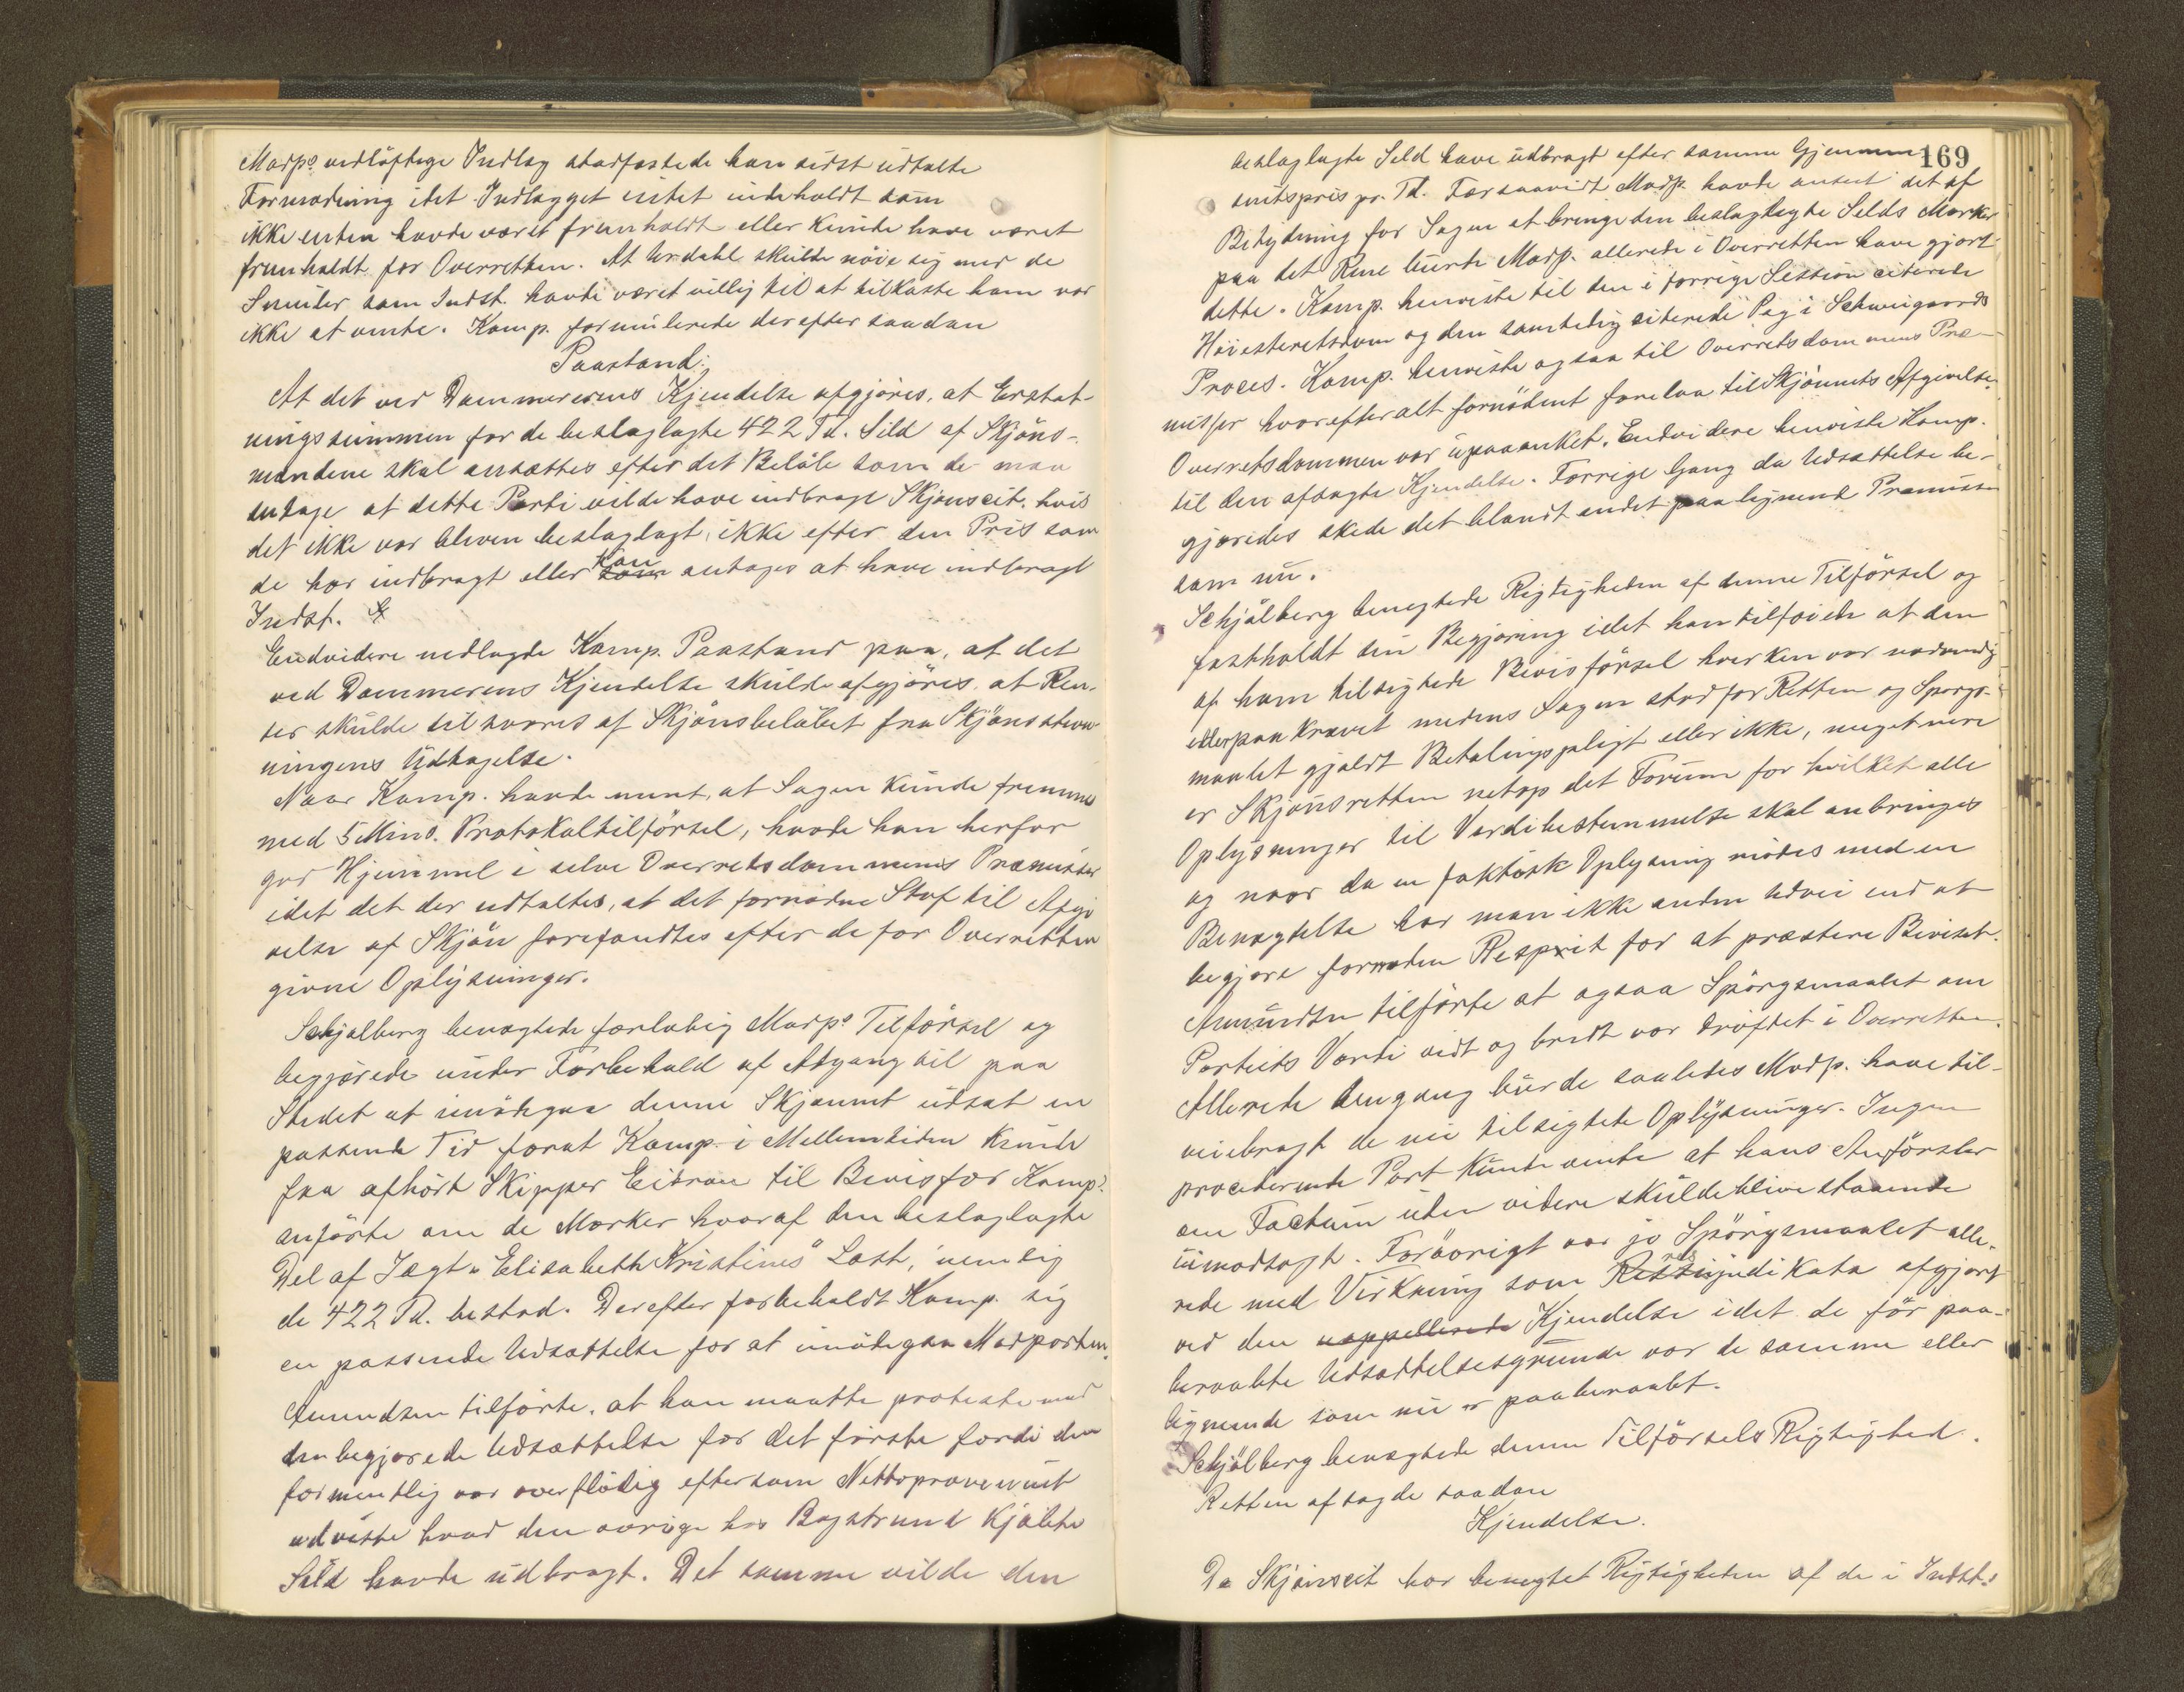 Modp.s vidløftige Indlæg stadfæstede han sidst udtalte
Formodning idet Indlægget intet indeholdt som
ikke enten havde været fremholdt eller kunde have været
fremholdt for Overretten. At Urdahl skulde nöie sig med de
Smuler som Indst. havde været villig til at tilkaste ham var
ikke at vente. Komp. formulerede derefter saadan
Paastand:
At det ved Dommerens Kjendelse afgjøres, at Erstat-
ningssummen for de beslaglagte 422 Td. Sild af Skjöns-
mændene skal ansættes efter det Beløb som de maa
antage at dette Parti vilde have indbragt Skjönscit. hvis
det ikke var bleven beslaglagt, ikke efter den Pris som
de har indbragt eller kan antages at have indbragt
Indst.
Endvidere nedlagde Komp. Paastand paa, at det
ved Dommerens Kjendelse skulde afgjöres, at Ren-
ter skulde tilsvares af Skjönsbelöbet fra Skjönsstevn-
ningens Udtagelse.
Naar Komp. havde ment, at Sagen kunde fremmes
med 5 Mins. Protokoltilförsel, havde han herfor
god Hjemmel i selve Overretsdommens Præmisser
idet det der udtaltes, at det fornødne Stof til Afgi-
velse af Skjön forefandtes efter de for Overretten
givne Oplysninger.
Schjølberg benægtede forløbig Modp.s Tilförsel og
begjærede under Forbehold af Adgang til paa
Stedet at imödegaa denne Skjønnet udsat en
passende Tid forat Komp. i Mellemtiden kunde
faa afhört Skipper Eitran til Bevis for Komp.s
anförte om de Mærker hvoraf den beslaglagte
Del af Jægt „Elisabeth Kristines“ Last, nemlig
de 422 Td. bestod. Derefter forbeholdt Komp. sig
en passende Udsættelse for at imødegaa Modparten.
Amundsen tilförte, at han maatte protestere mod
den begjærede Udsættelse for det förste fordi den
formentlig var overflödig eftersom Nettoprovenuet
udviste hvad den övrige hos Bagstrand kjöbte
Sild havde udbragt. Det samme vilde den
169
beslaglagte Sild have udbragt efter samme Gjennem-
snitspris pr. Td. Forsaavidt Modp. havde anseet det af
Betydning for Sagen at bringe den beslaglagte Silds Mærker
paa det Rene burde Modp. allerede i Overretten have gjort
dette. Komp. henviste til den i forrige Session citerede
Höiesteretsdom og den samtidig citerede Pag i Schweigaards
Proces. Komp. henviste ogsaa til Overretsdommens Præ-
misser hvorefter alt fornödent forelaa til Skjönnets Afgivelse.
Overretsdommen var upaaanket. Endvidere henviste Komp.
til den afsagte Kjendelse. Forrige Gang da Udsættelse be-
gjæredes skede det blandt andet paa lignende Præmisser
som nu.
Schjølberg benegtede Rigtigheden af denne Tilförsel og
fastholdt sin Begjæring idet han tilföiede at den
af ham tilsigtede Bevisförsel hverken var nødvendig
eller paakrævet medens Sagen stod for Retten og Spørgs-
maalet gjaldt Betalingspligt eller ikke, meget mere
er Skjönsretten netop det Forum for hvilket alle
Oplysninger til Verdibestemmelse skal anbringes
og naar da en faktisk Oplysning mödes med en
Benægtelse har man ikke anden Udvei end at
begjære fornøden Respit for at præstere Beviset.
Amundsen tilförte at ogsaa Spörgsmaalet om
Partiets Værdi vidt og bredt var dröftet i Overretten.
Allerede dengang burde saaledes Modp. have til-
veiebragt de nu tilsigtede Oplysninger. Ingen
procederende Part kunde vente at hans Anförsler
om Factum uden videre skulde blive staaende
uimodsagt. Foröovrigt var jo Spörgsmaalet alle-
rede med Virkning som res judikata afgjort
ved den uappellerede Kjendelse idet de för paa-
beraabte Udsættelsesgrunde var de samme eller
lignende som nu er paaberaabt.
Schjölberg benægtede denne Tilförsels Rigtighed.
Retten afsagde saadan
Kjendelse.
Da Skjönscit har benegtet Rigtigheden af de i Indst.s